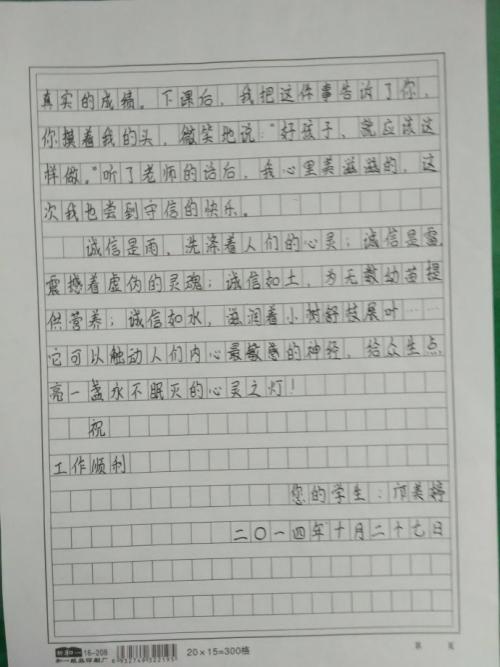 真实的成绩。下课后，我把这件事告诉了你，
你摸着我的头，微笑地说：“好孩子、就应该这
样做。”听了老师的话后，我心里美滋滋的，这
次我也尝到守信的快乐。
诚信是雨，洗涤着人们的心灵；诚信是雷，
震撼着虚伪的灵魂；诚信如土，为无数幼苗提
供营养；诚信如水，滋润着小树舒枝展叶……
它可以触动人们内心最敏感的神经，给众生点
亮一盏永不眠灭的心灵之灯！
祝
工作顺利
您的学生：邝美婷
二〇一四年十月二十七日
新和一 16-208
和一纸品印刷厂 6932749322193 20×15=300格 第 页